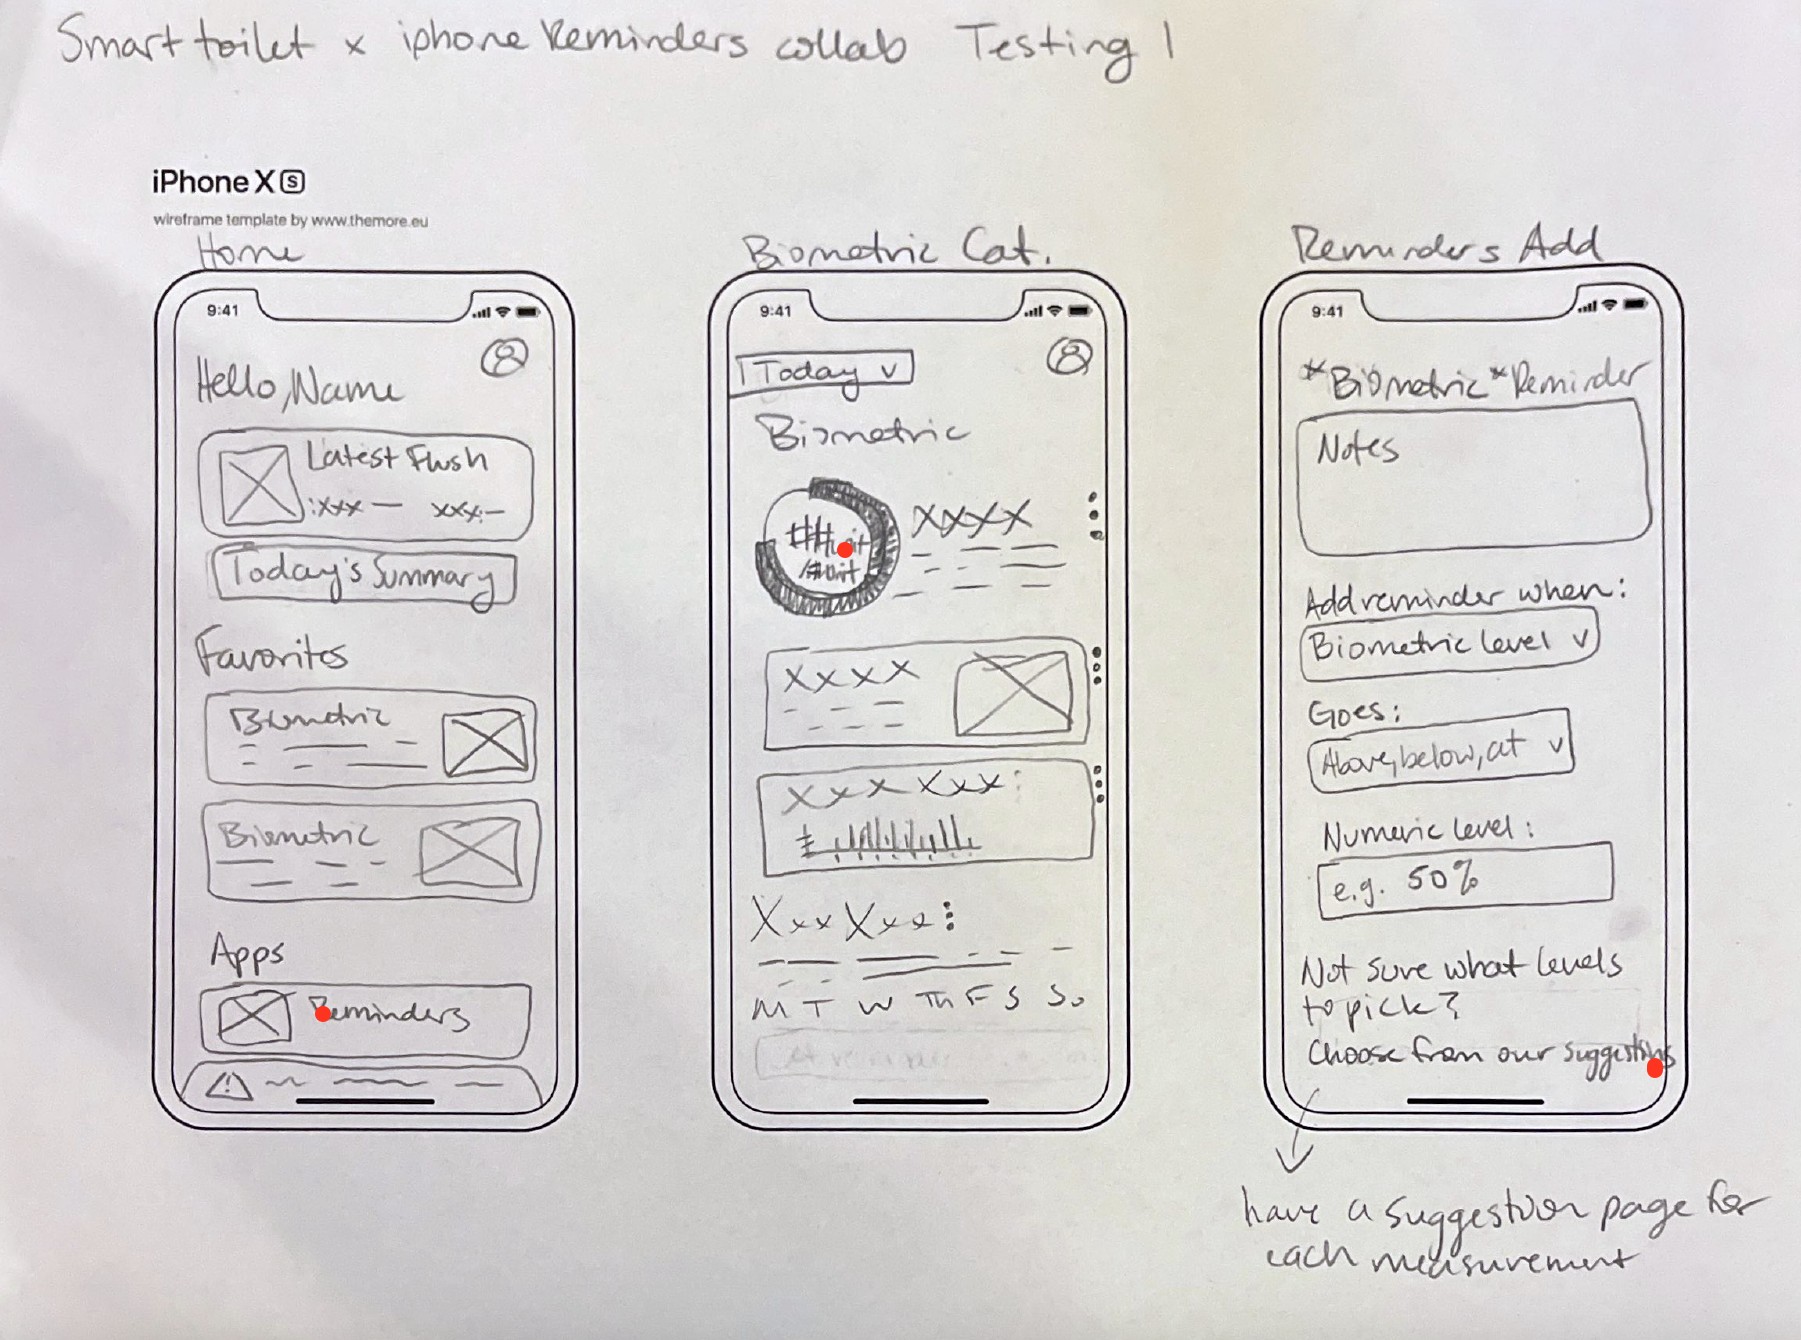 Smart toilet x iphone Reminders collab Testing 1
iPhone XS
wireframe template by www.themore.eu
Home
9:41
Hello, Name
Latest Flush
:xxx — xxx:—
Today's Summary
Favorites
Biometric
Biometric
Apps
Reminders
Biometric Cat.
9:41
Today v
Biometric
##unit
/#unit
XXXX
XXXX
XxX Xxx:
Xxx Xxx:
M T W Th F S S
Reminders Add
9:41
*Biometric* Reminder
Notes
Add reminder when:
Biometric level v
Goes:
Above, below, at v
Numeric level:
e.g. 50%
Not sure what levels
to pick?
Choose from our suggestions
have a suggestion page for
each measurement